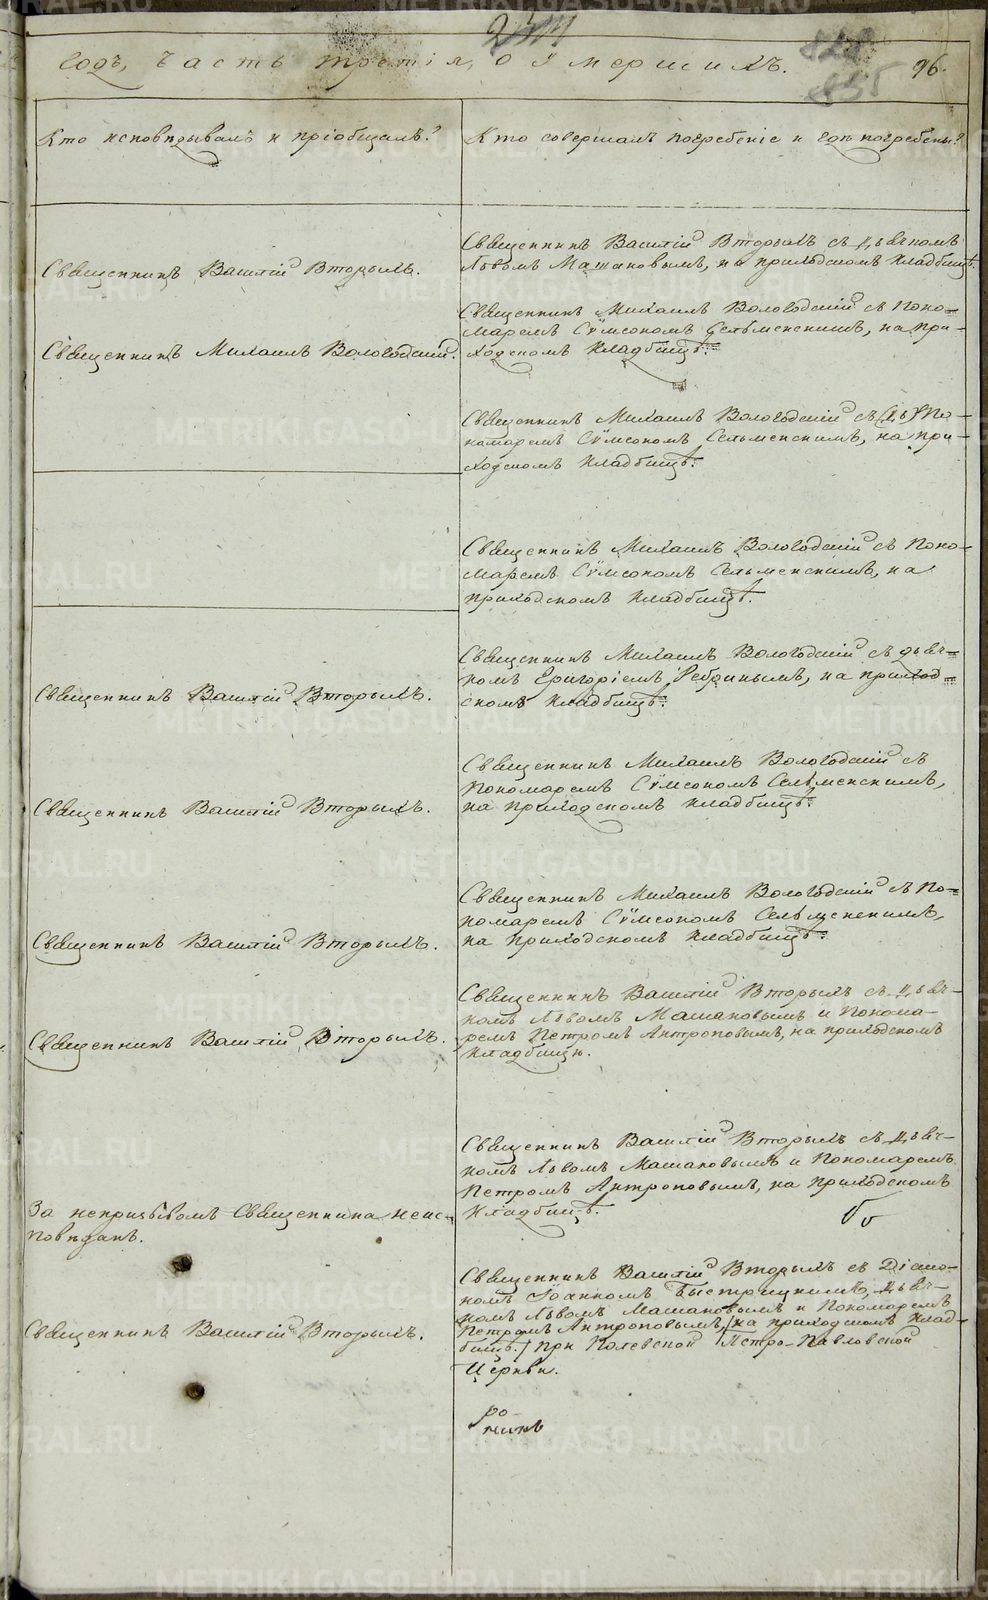 96.
годъ, часть третія, о умершихъ.
Кто исповѣдывалъ и пріобщалъ?
Кто совершалъ погребеніе и гдѣ погребены?
Священникъ Василій Вторыхъ.
Священникъ Василій Вторыхъ съ Дьячкомъ
Львомъ Машановымъ, на приходскомъ кладбищѣ.
Священникъ Михаилъ Вологодскій.
Священникъ Михаилъ Вологодскій съ Поно-
маремъ Сѵмеономъ Сельменскимъ, на при-
ходскомъ кладбищѣ.
Священникъ Михаилъ Вологодскій съ По-
номаремъ Сѵмеономъ Сельменскимъ, на при-
ходскомъ кладбищѣ.
Священникъ Михаилъ Вологодскій съ Поно-
маремъ Сѵмеономъ Сельменскимъ, на
приходскомъ кладбищѣ.
Священникъ Василій Вторыхъ.
Священникъ Михаилъ Вологодскій съ дьяч-
комъ Григоріемъ Ребринымъ, на приход-
скомъ кладбищѣ.
Священникъ Василій Вторыхъ.
Священникъ Михаилъ Вологодскій съ
Пономаремъ Сѵмеономъ Сельменскимъ,
на приходскомъ кладбищѣ.
Священникъ Василій Вторыхъ.
Священникъ Михаилъ Вологодскій съ По-
номаремъ Сѵмеономъ Сельменскимъ,
на приходскомъ кладбищѣ.
Священникъ Василій Вторыхъ.
Священникъ Василій Вторыхъ съ Дьяч-
комъ Львомъ Машановымъ и Понома-
ремъ Петромъ Антроповымъ, на приходскомъ
кладбищѣ.
За непризывомъ Священника неис-
повѣданъ.
Священникъ Василій Вторыхъ съ Дьяч-
комъ Львомъ Машановымъ и Пономаремъ
Петромъ Антроповымъ, на приходскомъ
кладбищѣ.
Священникъ Василій Вторыхъ.
Священникъ Василій Вторыхъ съ Діако-
номъ Іоанномъ Быстрицкимъ, Дьяч-
комъ Львомъ Машановымъ и Пономаремъ
Петромъ Антроповымъ, /на приходскомъ клад-
бищѣ./ при Полевской Петро-Павловской
Церкви.
METRIKI.GASO-URAL.RU